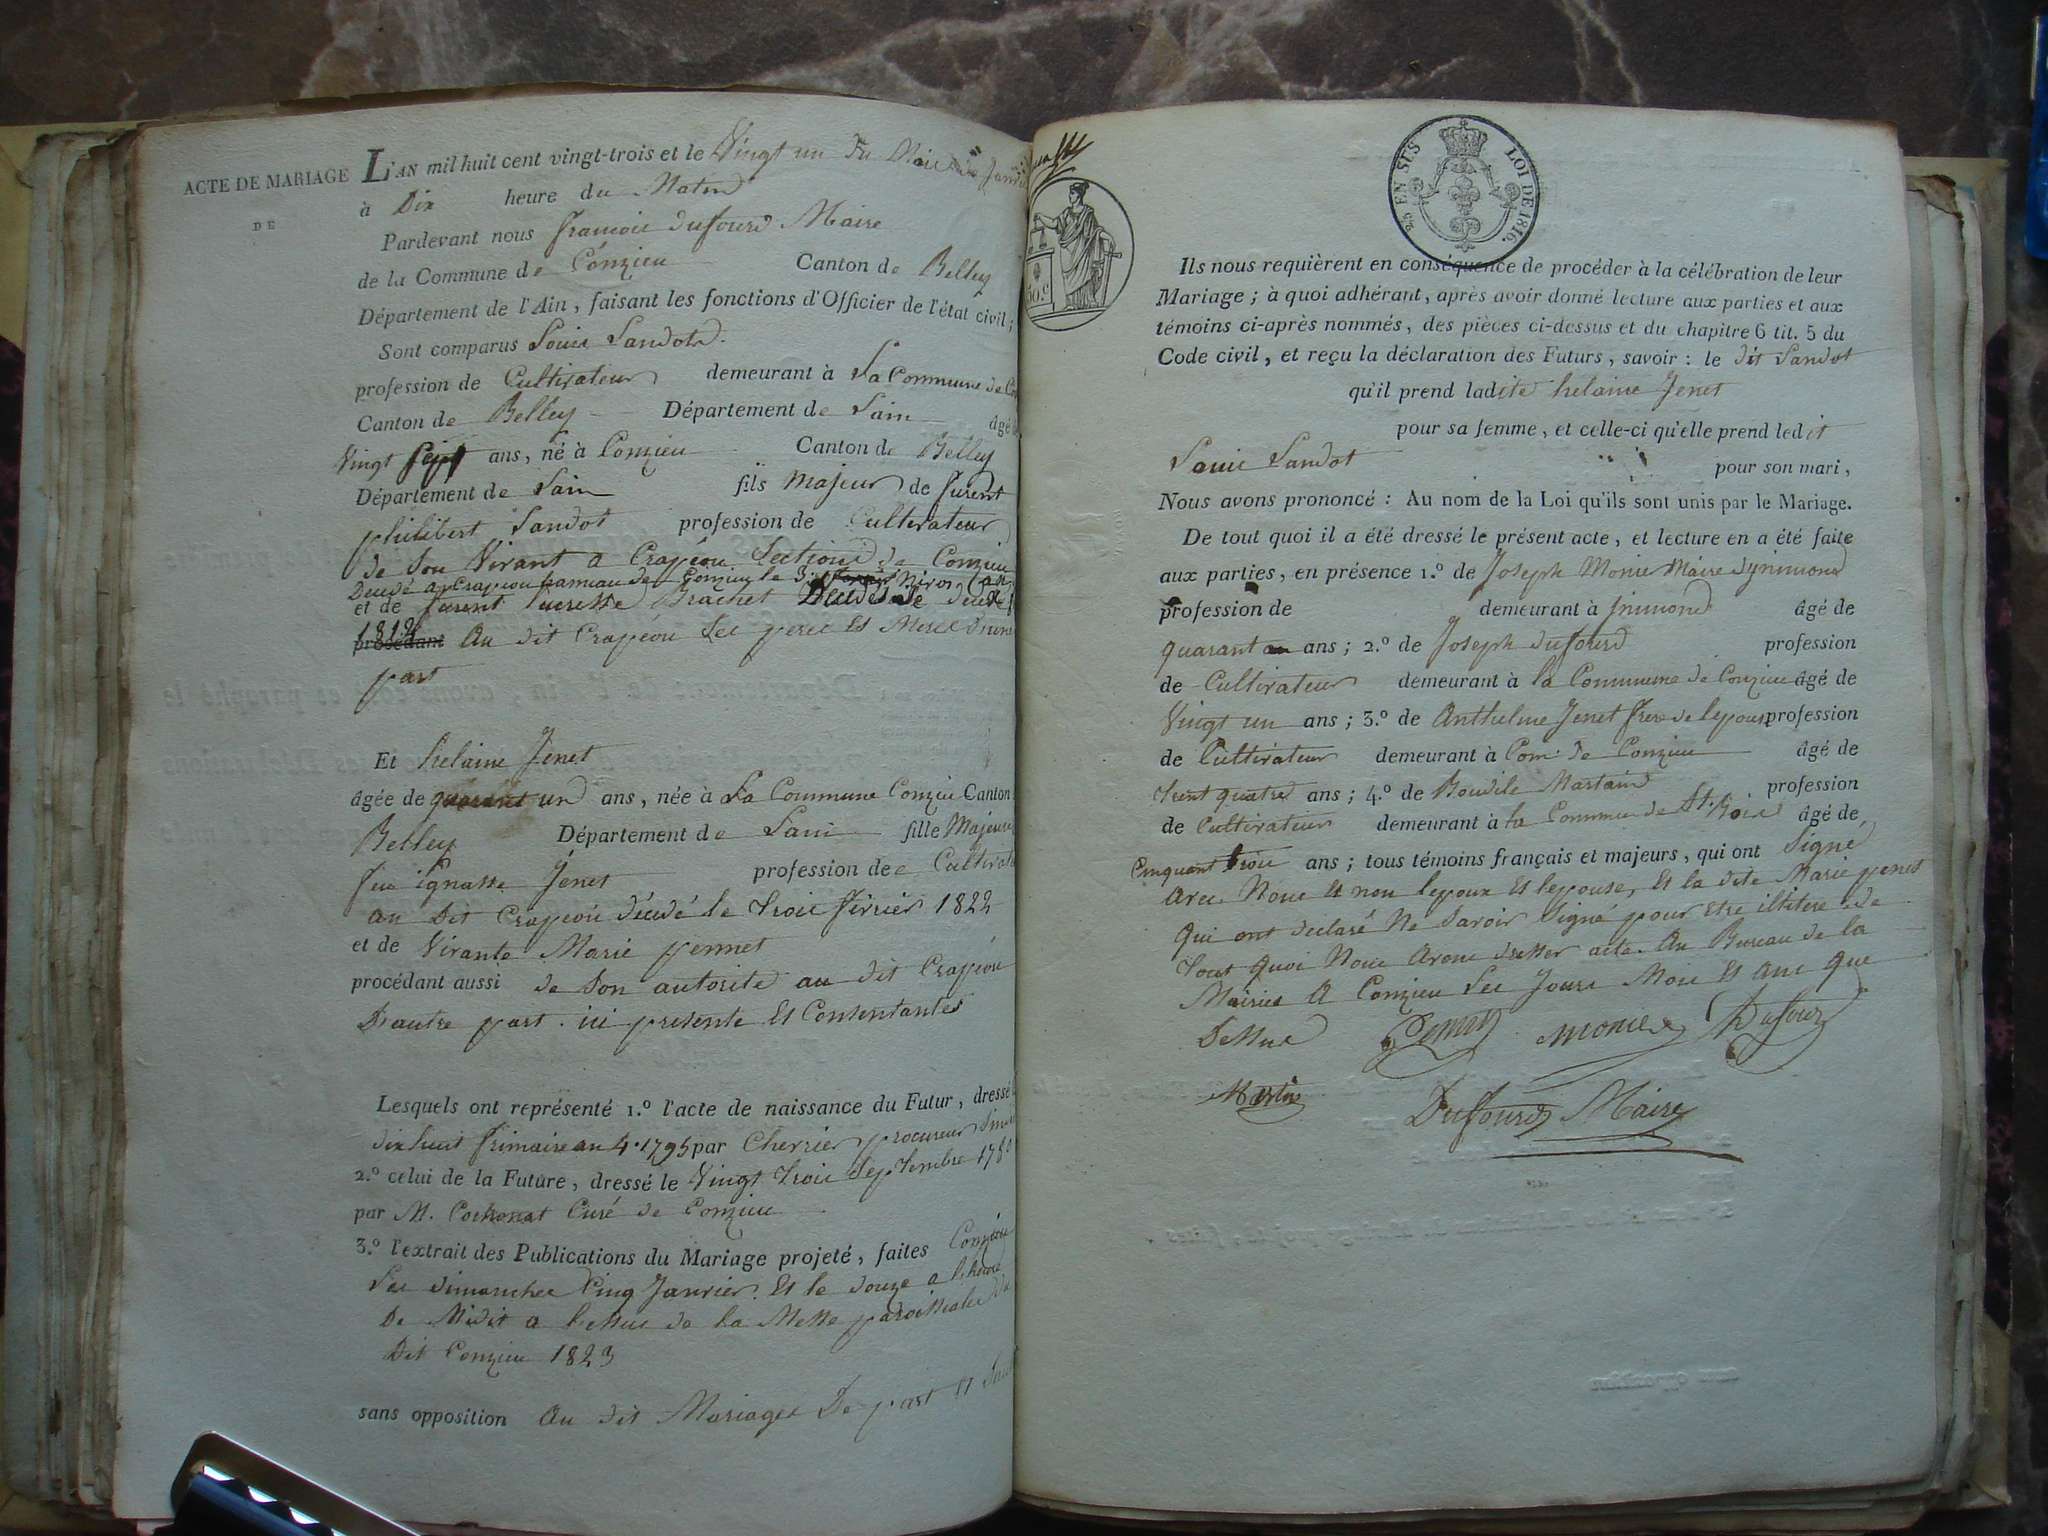 ACTE DE MARIAGE
DE
L'AN mil huit cent vingt-trois et le Vingt un du Mois de
à Dix heure du Matin
Pardevant nous francois dufourd Maire
de la Commune de Conzieu Canton de Belley
Département de l'Ain, faisant les fonctions d'Officier de l'état civil;
Sont comparus Louis Landot
profession de Cultivateur demeurant à La Commune de
Canton de Belley Département de Lain âgé
Vingt Sept ans, né à Conzieu Canton de Belley
Département de Lain fils Majeur de
philibert Landot profession de Cultivateur
de Son Vivant a Crapéou Sections de Conzieu
Decedé a Crapeou hammau de Conzieu le
et de Brachet
1812
procédant au dit Crapéou Ses pere Et Mere
part
Et helaine Jenet
âgée de quarant un ans, née à La Commune Conzieu Canton
Belley Département de Lain fille Majeure
feu ignasse Jenet profession de
au Dit Crapeou décédé le trois fevrier 1822
et de Vivante Marie pennet
procédant aussi de Son autorité au dit Crapéou
D'autre part. ici presente Et Consentantes
Lesquels ont représenté 1.º l'acte de naissance du Futur, dressé
dix huit frimaire an 4. 1795 par Cherrier procureur
2.º celui de la Future, dressé le Vingt trois Septembre
par M. Curé de Conzieu
3.º l'extrait des Publications du Mariage projeté, faites
Les dimanches Cinq Janvier Et le douze a lheure
De Midit a lessue de la Messe paroissiale
Dit Conzieu 1823
sans opposition Au dit Mariages De part Et
25 EN SUS
LOI DE 1816.
50.c
Ils nous requièrent en conséquence de procéder à la célébration de leur
Mariage; à quoi adhérant, après avoir donné lecture aux parties et aux
témoins ci-après nommés, des pièces ci-dessus et du chapitre 6 tit. 5 du
Code civil, et reçu la déclaration des Futurs, savoir: le dit Landot
qu'il prend ladite helaine Jenet
pour sa femme, et celle-ci qu'elle prend ledit
Louis Landot pour son mari,
Nous avons prononcé: Au nom de la Loi qu'ils sont unis par le Mariage.
De tout quoi il a été dressé le présent acte, et lecture en a été faite
aux parties, en présence 1.º de Joseph Monin Maire dynimond
profession de demeurant à ynimond âgé de
quarant ans; 2.º de Joseph dufourd profession
de Cultivateur demeurant à la Commune de Conzieu âgé de
Vingt un ans; 3.º de Anthelme Jenet frere de lepouse profession
de Cultivateur demeurant à Com. de Conzieu âgé de
trent quatre ans; 4.º de Martain profession
de Cultivateur demeurant à la Commue de St. Bois âgé de
Cinquant trois ans; tous témoins français et majeurs, qui ont Signé
Avec Nous Et non lepoux Et lepouse, Et la dite Marie penet
Qui ont declaré Ne Savoir Signé pour Etre illitere de
tout Quoi Nous Avons dresser acte. Au Bureau de la
Mairies A Conzieu Les Jours Mois Et Ans Que
Dessus Monin Dufour
Martin
Dufourd Maire